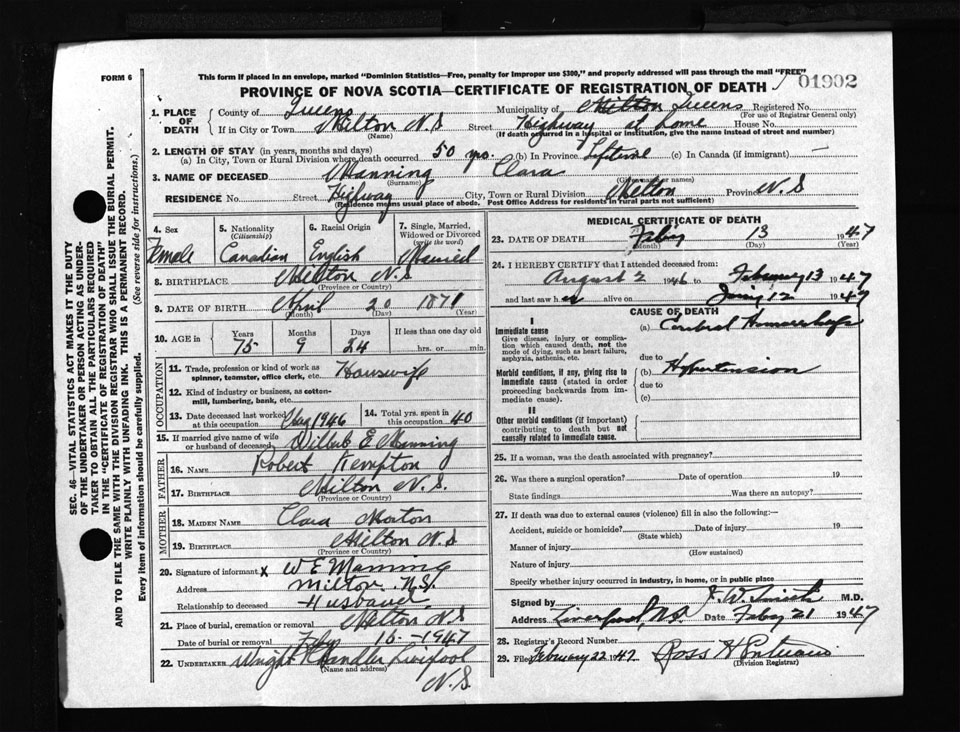 FORM 6
This form if placed in an envelope, marked "Dominion Statistics—Free, penalty for improper use $300," and properly addressed will pass through the mail "FREE"
PROVINCE OF NOVA SCOTIA—CERTIFICATE OF REGISTRATION OF DEATH
01902
SEC. 46—VITAL STATISTICS ACT MAKES IT THE DUTY
OF THE UNDERTAKER OR PERSON ACTING AS UNDER-
TAKER TO OBTAIN ALL THE PARTICULARS REQUIRED
IN THE "CERTIFICATE OF REGISTRATION OF DEATH"
AND TO FILE THE SAME WITH THE DIVISION REGISTRAR WHO SHALL ISSUE THE BURIAL PERMIT.
WRITE PLAINLY WITH UNFADING INK. THIS IS A PERMANENT RECORD.
Every item of information should be carefully supplied. (See reverse side for instructions.)
1. PLACE OF DEATH
County of Queens Municipality of Milton Queens Registered No.
(For use of Registrar General only)
If in City or Town Milton N.S Street Highway at home House No.
(Name) (If death occurred in a hospital or institution, give the name instead of street and number)
2. LENGTH OF STAY (in years, months and days)
(a) In City, Town or Rural Division where death occurred 50 yrs. (b) In Province Lifetime (c) In Canada (if immigrant) —
3. NAME OF DECEASED Manning Clara
(Surname) (Given names or names)
RESIDENCE No. Street Highway City, Town or Rural Division Milton Province N.S
(Residence means usual place of abode. Post Office Address for residents in rural parts not sufficient)
4. Sex Female
5. Nationality (Citizenship) Canadian
6. Racial Origin English
7. Single, Married, Widowed or Divorced (write the word) Married
8. BIRTHPLACE Milton N.S
(Province or Country)
9. DATE OF BIRTH April 20 1871
(Month) (Day) (Year)
10. AGE in Years 75 Months 9 Days 24 If less than one day old hrs. or min.
OCCUPATION
11. Trade, profession or kind of work as spinner, teamster, office clerk, etc. Housewife
12. Kind of industry or business, as cotton-mill, lumbering, bank, etc.
13. Date deceased last worked at this occupation 1946
14. Total yrs. spent in this occupation 40
15. If married give name of wife or husband of deceased E Manning
FATHER
16. NAME Robert Kempton
17. BIRTHPLACE Milton N.S.
(Province or Country)
MOTHER
18. MAIDEN NAME Clara Morton
19. BIRTHPLACE Milton N.S
(Province or Country)
20. Signature of informant x W E Manning
Address Milton N.S.
Relationship to deceased Husband
21. Place of burial, cremation or removal Milton N.S
Date of burial or removal Feby 16 - 1947
22. UNDERTAKER Wright Chandler Liverpool
(Name and address)
N.S.
MEDICAL CERTIFICATE OF DEATH
23. DATE OF DEATH Feby 13 1947
(Month) (Day) (Year)
24. I HEREBY CERTIFY that I attended deceased from:
August 2 1946 to February 13 1947
and last saw her alive on 12 1947
CAUSE OF DEATH
I
Immediate cause
Give disease, injury or complication which caused death, not the mode of dying, such as heart failure, asphyxia, asthenia, etc.
(a) Cerebral Hemorrhage
due to
Morbid conditions, if any, giving rise to immediate cause (stated in order proceeding backwards from immediate cause).
(b) Hypertension
due to
(c)
II
Other morbid conditions (if important) contributing to death but not causally related to immediate cause.
25. If a woman, was the death associated with pregnancy?
26. Was there a surgical operation? Date of operation 19
State findings Was there an autopsy?
27. If death was due to external causes (violence) fill in also the following:—
Accident, suicide or homicide? Date of injury 19
(State which)
Manner of injury
(How sustained)
Nature of injury
Specify whether injury occurred in industry, in home, or in public place
Signed by J. W. Smith M.D.
Address Liverpool, N.S. Date Feby 21 1947
28. Registrar's Record Number
29. Filed February 22 1947 Ross H
(Division Registrar)